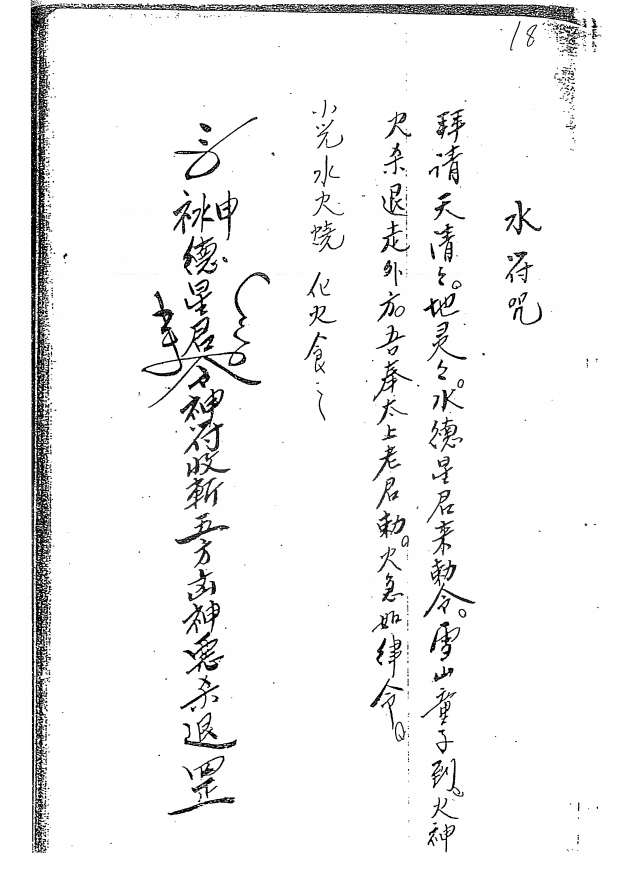 18
水符咒
拜请天清々。地灵々。水德星君来勅令。雪山童子到。火神
火杀退走外方。吾奉太上老君勅。火急如律令。
小児水火烧 化火食之
水神德星君令神符收斬五方凶神惡杀退罡